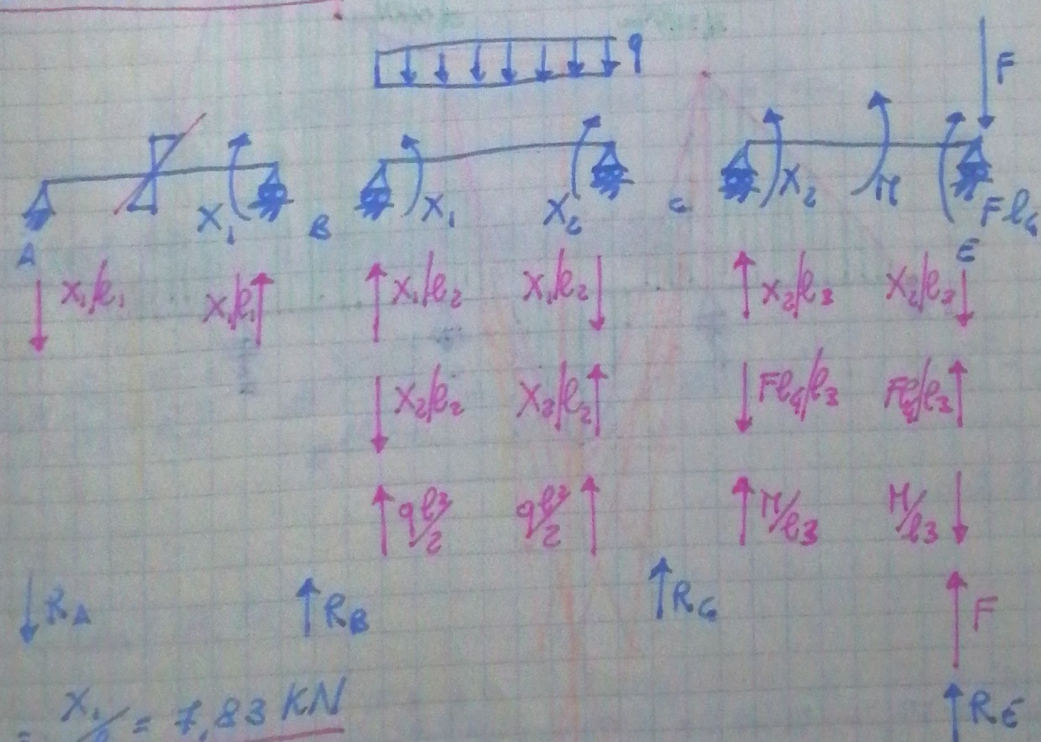 q
F
X₁ B X₁ X₂ C X₂ M Fl₄
A E
X₁/l₁ X₁/l₁ X₁/l₂ X₁/l₂ X₂/l₃ X₂/l₃
X₂/l₂ X₂/l₂ Fl₄/l₃ Fl₄/l₃
ql₂/2 ql₂/2 M/l₃ M/l₃
R_A R_B R_C F
= X₁/ = 7,83 KN R_E